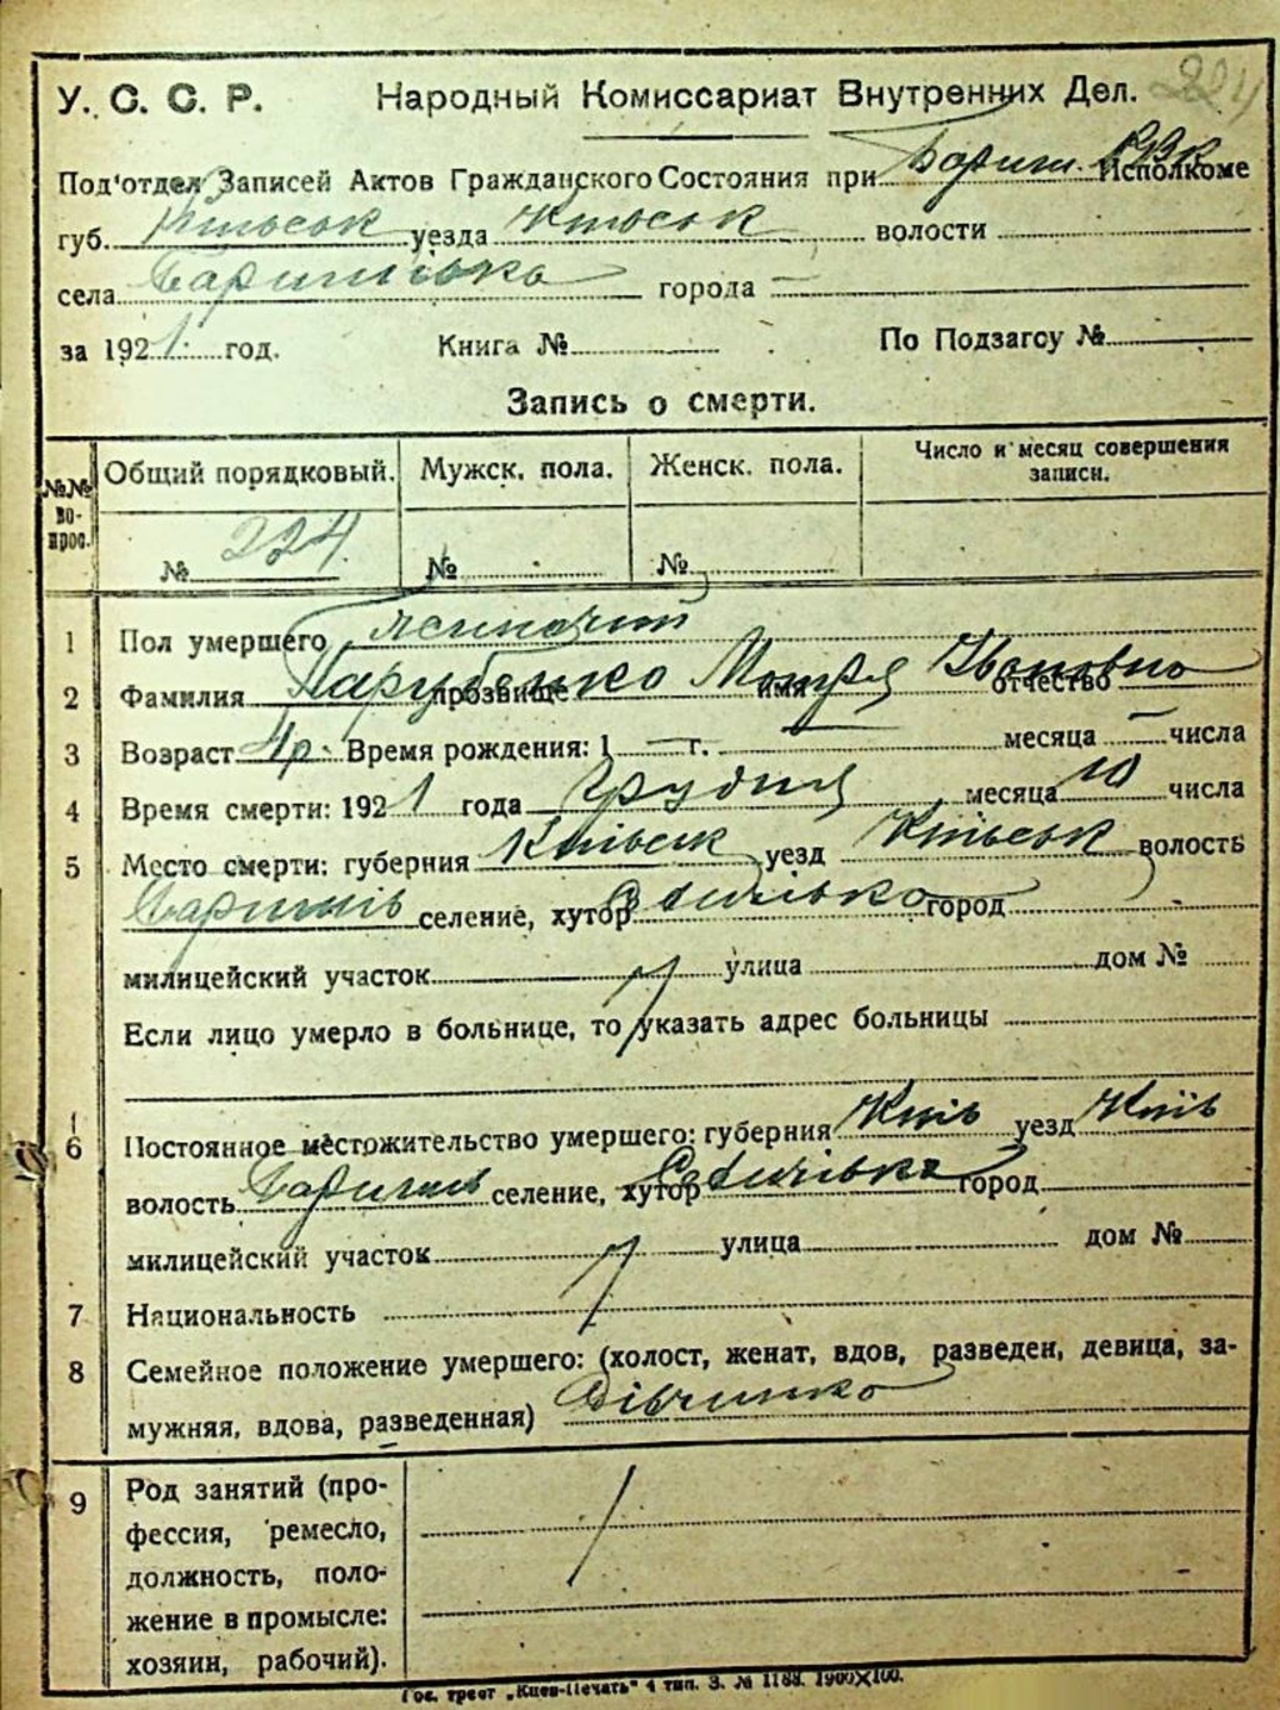 224
У. С. С. Р. Народный Комиссариат Внутренних Дел.
Под'отдел Записей Актов Гражданского Состояния при Бориш. РВК Исполкоме
губ. Київськ уезда Київськ волости
села Баришівка города —
за 1921. год. Книга № По Подзагсу №
Запись о смерти.
№№ вопрос. Общий порядковый. Мужск. пола. Женск. пола. Число и месяц совершения записи.
№ 224. № №
1 Пол умершего
2 Фамилия Парубенко прозвище Мотря имя Івановна отчество
3 Возраст 4р. Время рождения: 1 — г. — месяца — числа
4 Время смерти: 1921 года Грудня месяца 10 числа
5 Место смерти: губерния Київськ уезд Київськ волость
Баришів селение, хутор город
милицейский участок улица дом №
Если лицо умерло в больнице, то указать адрес больницы
6 Постоянное местожительство умершего: губерния Київ уезд Київ
волость Баришів селение, хутор город
милицейский участок улица дом №
7 Национальность
8 Семейное положение умершего: (холост, женат, вдов, разведен, девица, за-
мужняя, вдова, разведенная) Дівчинка
9 Род занятий (про-
фессия, ремесло,
должность, поло-
жение в промысле:
хозяин, рабочий).
Гос. трест „Киев-Печать" 4 тип. З. № 1188. 1900×100.